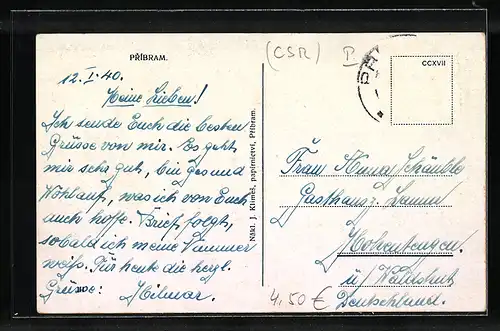 PŘÍBRAM.
12.I.40.
Meine Lieben!
Ich sende Euch die besten
Grüsse von mir. Es geht
mir sehr gut, bin gesund
Wohlauf, was ich von Euch
auch hoffe. Brief folgt,
sobald ich meine Nummer
weiss. Für heute die herzl.
Grüsse: Hilmar.
Nákl. J. Klimeš, papírnictví, Příbram.
(CSR) P
CCXVII
Frau Anna Schäuble
Gasthaus z. Lamm
Hohentengen.
ü/Waldshut
Deutschland.
4.50 €